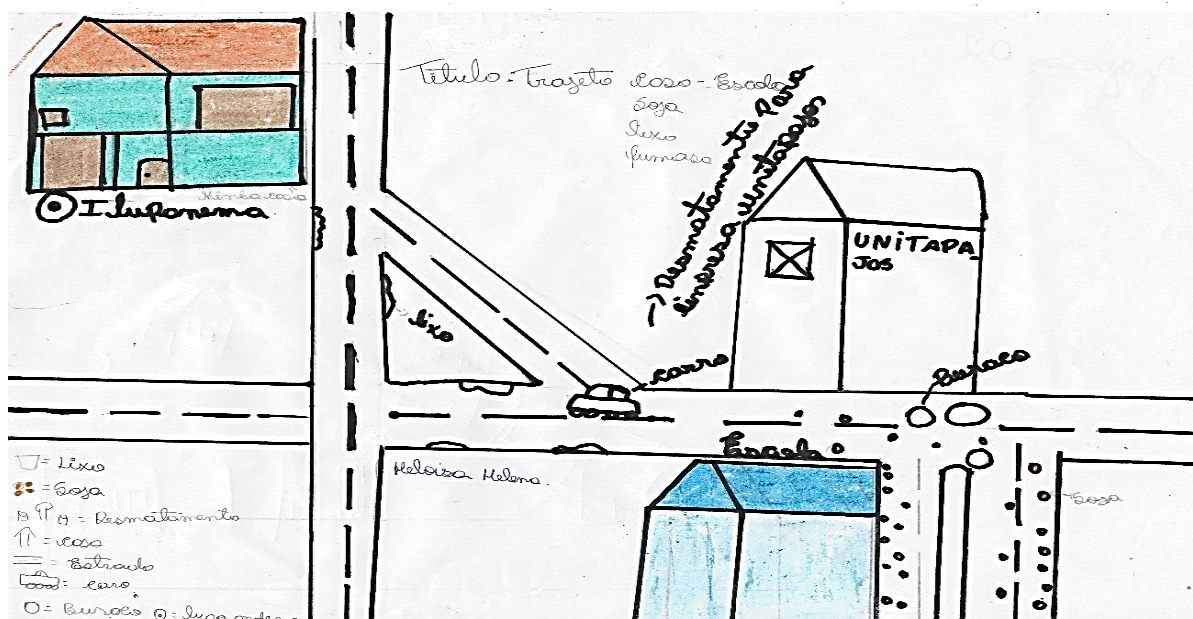 Título: Trajeto casa - Escola
Soja
lixo
fumasa
Minha casa
Ituponema
→ Desmatamento Para
Empresa unitapajos
UNiTAPA
JOS
lixo
carro
Buraco
Escola
Heloisa Helena.
Soja
= Lixo
= Soja
= Desmatamento
= casa
= Estrada
= caro.
O = Buraco